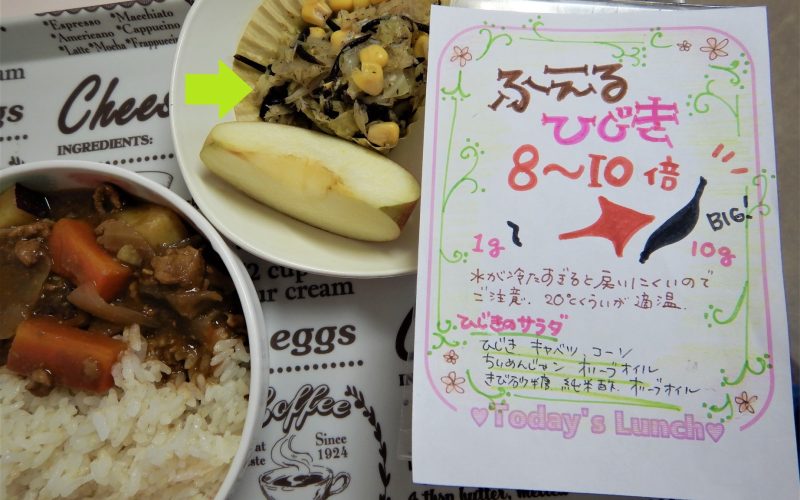 *Espresso
Macchiato
*Americano
Cappucino
*Latte *Mocha *Frappuccino
Chees
INGREDIENTS:
cream
ggs
2 cup
ur cream
eggs
Coffee
Since
1924
ふ〜える
ひじき
8〜10倍
BIG!
1g
10g
水が冷たすぎると戻りにくいので
ご注意。20℃くらいが適温。
ひじきのサラダ
ひじき キャベツ コーン
ちりめんじゃこ オリーブオイル
きび砂糖 純米酢 オリーブオイル
♥Today's Lunch♥